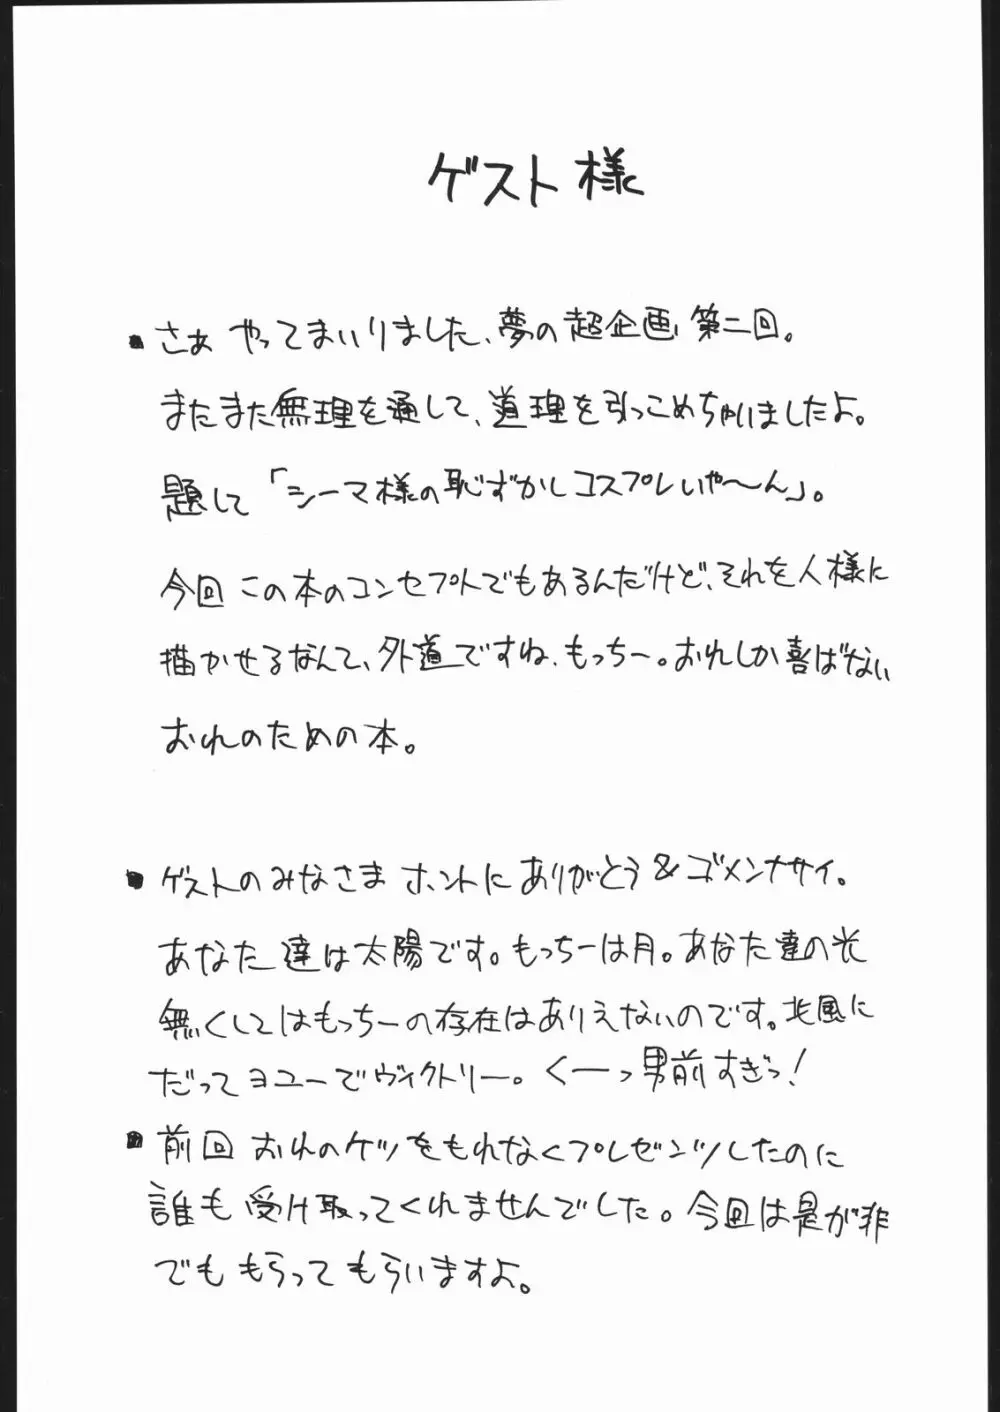 ゲスト様
・さあ やってまいりました、夢の超企画 第二回。
またまた無理を通して、道理を引っこめちゃいましたよ。
題して「シーマ様の恥ずかしコスプレいや〜ん」。
今回この本のコンセプトでもあるんだけど、それを人様に
描かせるなんて、外道ですね、もっちー。おれしか喜ばない
おれのための本。
・ゲストのみなさま ホントにありがとう&ゴメンナサイ。
あなた達は太陽です。もっちーは月。あなた達の光
無くしてはもっちーの存在はありえないのです。北風に
だってヨユーでヴィクトリー。くーっ男前すぎっ!
・前回 おれのケツをもれなくプレゼンツしたのに
誰も受け取ってくれませんでした。今回は是が非
でも もらって もらいますよ。